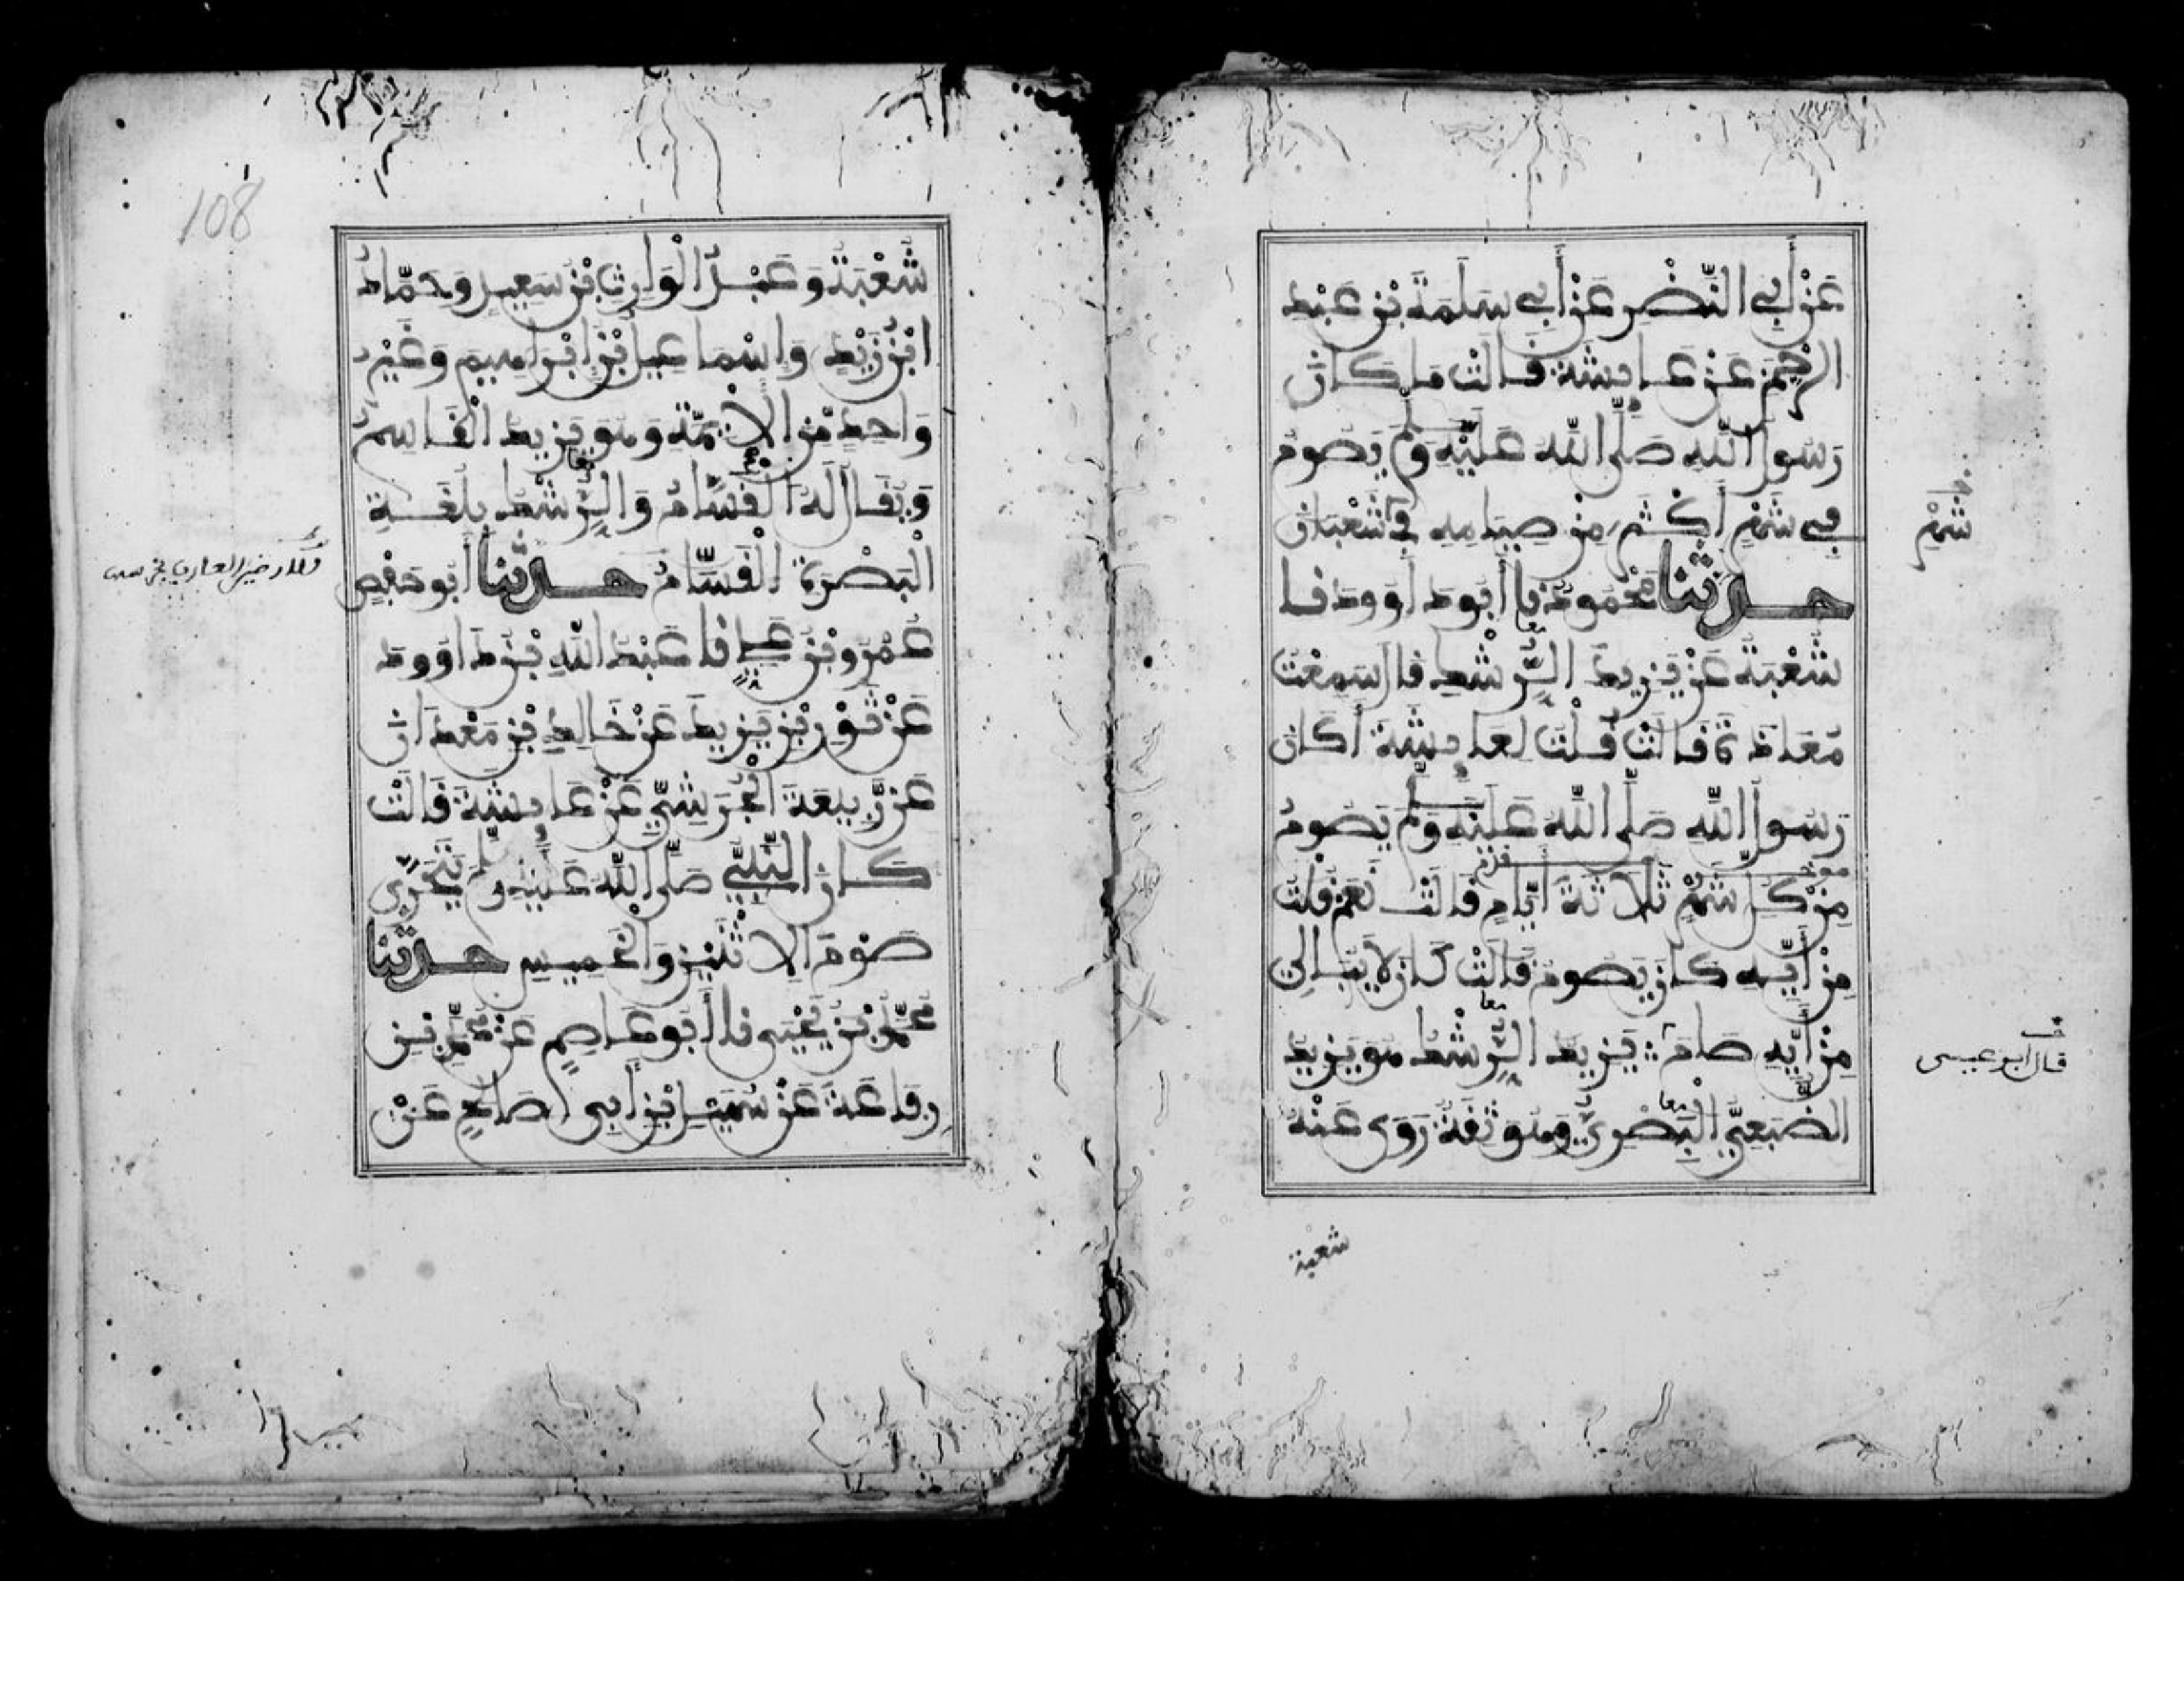 عَنْ أَبِي النَّضْرِ عَنْ أَبِي سَلَمَةَ بْنِ عَبْدِ
الرَّحْمَنِ عَنْ عَايِشَةَ قَالَتْ مَا كَانَ
رَسُولُ اللَّهِ صَلَّى اللَّهُ عَلَيْهِ وَسَلَّمَ يَصُومُ
فِي شَهْرٍ أَكْثَرَ مِنْ صِيَامِهِ فِي شَعْبَانَ
شَهْرٍ
حَدَّثَنَا مَحْمُودٌ نا أَبُو دَاوُودَ نا
شُعْبَةُ عَنْ يَزِيدَ الرِّشْكِ قَالَ سَمِعْتُ
مُعَاذَةَ قَالَتْ قُلْتُ لِعَايِشَةَ أَكَانَ
رَسُولُ اللَّهِ صَلَّى اللَّهُ عَلَيْهِ وَسَلَّمَ يَصُومُ
مِنْ كُلِّ شَهْرٍ ثَلَاثَةَ أَيَّامٍ قَالَتْ نَعَمْ قُلْتُ
مِنْ أَيِّهِ كَانَ يَصُومُ قَالَتْ كَانَ لَا يُبَالِي
مِنْ أَيِّهِ صَامَ يَزِيدُ الرِّشْكُ هُوَ يَزِيدُ
قال ابو عيسى
الضُّبَعِيُّ الْبَصْرِيُّ وَهُوَ ثِقَةٌ رَوَى عَنْهُ
شعبة
108
شُعْبَةُ وَعَبْدُ الْوَارِثِ بْنُ سَعِيدٍ وَحَمَّادُ
ابْنُ زَيْدٍ وَإِسْمَاعِيلُ بْنُ إِبْرَاهِيمَ وَغَيْرُ
وَاحِدٍ مِنَ الْأَئِمَّةِ وَهُوَ يَزِيدُ الْقَاسِمُ
وَيُقَالُ لَهُ الْقَسَّامُ وَالرِّشْكُ بِلُغَةِ
الْبَصْرَةِ الْقَسَّامُ حَدَّثَنَا أَبُو حَفْصٍ
عَمْرُو بْنُ عَلِيٍّ نا عَبْدُ اللَّهِ بْنُ دَاوُودَ
عَنْ ثَوْرِ بْنِ يَزِيدَ عَنْ خَالِدِ بْنِ مَعْدَانَ
عَنْ رَبِيعَةَ الْجُرَشِيِّ عَنْ عَايِشَةَ قَالَتْ
كَانَ النَّبِيُّ صَلَّى اللَّهُ عَلَيْهِ وَسَلَّمَ يَتَحَرَّى
صَوْمَ الِاثْنَيْنِ وَالْخَمِيسِ حَدَّثَنَا
مُحَمَّدُ بْنُ يَحْيَى نا أَبُو عَاصِمٍ عَنْ مُحَمَّدِ بْنِ
رِفَاعَةَ عَنْ سُهَيْلِ بْنِ أَبِي صَالِحٍ عَنْ